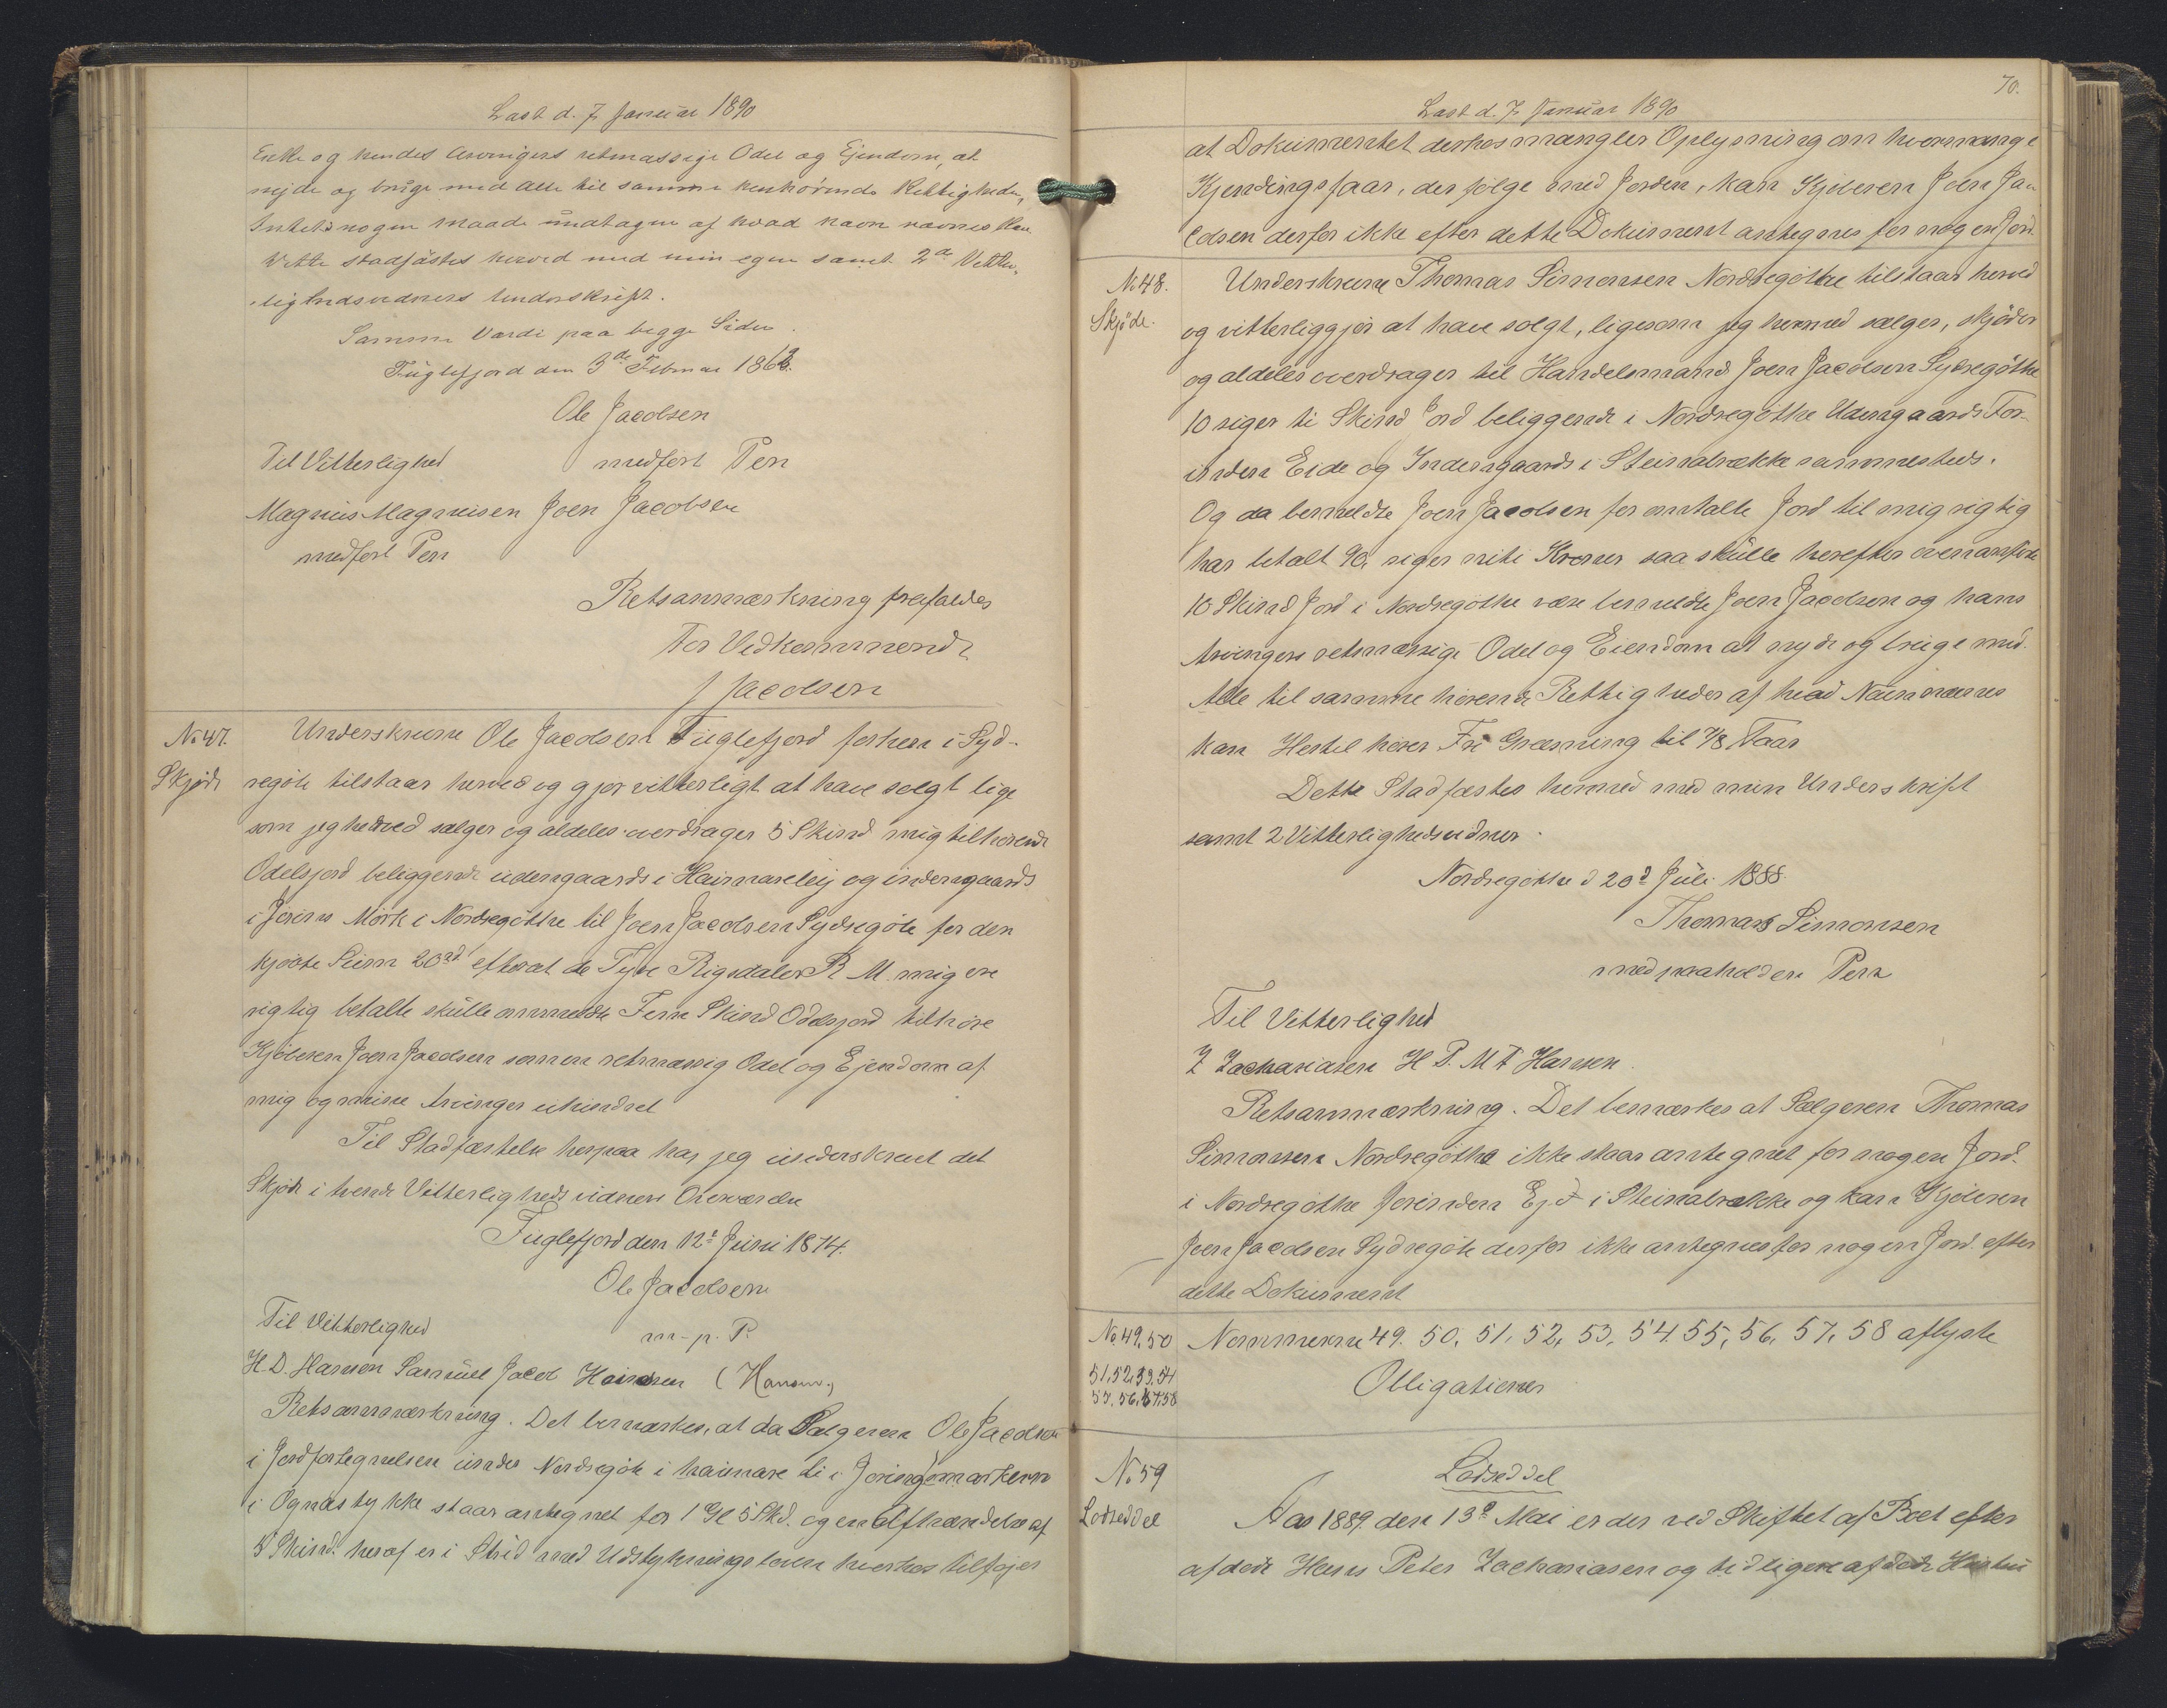 Læst d. 7 Januar 1890
Enke og hendes Arvingers retmæssige Odel og Ejendom, at
nyde og bruge med alle til samme henhørende Rettigheder,
Intet i nogen Maade undtagen af hvad Navn nævnes kan
Dette stadfæstes herved med min egen samt 2de Vitter-
lighedsvidners Underskrift.
Samme Værdi paa begge Sider.
Fuglefjord den 3de Februar
Ole Jacobsen
Til Vitterlighed medført Pen
Magnus Magnusen Joen Jacobsen
medført Pen
Retsanmærkning frafaldes
For Vedkommende
J Jacobsen
No 47.
Skjøde
Underskrevne Ole Jacobsen Fuglefjord forhen i Syd-
regøte tilstaar herved og gjør vitterligt at have solgt lige
som jeg herved sælger og aldeles overdrager 5 Skind mig tilhørende
Odelsjord beliggende udengaards i Haimareleij og indengaards
i Jorins Mørk i Nordregøthe til Joen Jacobsen Sydregøte for den
kjøbte Sum 20rd efterat de Tyve Rigsdaler R M. mig ere
rigtig betalte skulle anmeldte Fem Skind Odelsjord tilhøre
Kjøberen Joen Jacobsen som en retmæssig Odel og Ejendom af
mig og mine Arvinger uhindret
Til Stadfæstelse herpaa har jeg underskrevet det
Skjøde i tvende Vitterlighedsvidners Overværelse
Fuglefjord den 12te Juni 1874.
Ole Jacobsen
Til Vitterlighed m- p. P.
H. D. Hansen Samuel Jacob (Hansen)
Retsanmærkning. Det bemærkes, at da Sælgeren Ole Jacobsen
i Jordfortegnelsen under Nordregøte i haimare li i Joringemørken
i Ognastykke staar antegnet for 1 Gl 5 Skd. og en Afhændelse af
5 Skind heraf er i Strid med Udstykningsloven hvorhos tilføjes
70.
Læst d. 7 Januar 1890
at Dokumentet derhos mangler Oplysning om hvormange
Kjendingsfaar, der følge med Jorden, kan Kjøberen Joen Jac
obsen derfor ikke efter dette Dokument antegnes for nogen Jord.
No 48.
Skjøde.
Underskrevne Thomas Simonsen Nordregøthe tilstaar herved
og vitterliggjør at have solgt, ligesom jeg hermed sælger, skjøder
og aldeles overdrager til Handelsmand Joen Jacobsen Sydregøthe
10 siger ti Skind Jord beliggende i Nordregøthe Udengaards For-
inden Eide og Indengaards i Steinalrække sammesteds.
Og da bemeldte Joen Jacobsen for omtalte Jord til mig rigtig
har betalt 90, siger niti Kroner saa skulle herefter ovenanførte
10 Skind Jord i Nordregøthe være bemeldte Joen Jacobsen og hans
Arvingers retmæssige Odel og Eiendom at nyde og bruge med
Alle til samme hørende Rettigheder af hvad Navn nævnes
kan Hertil hører Fri Græsning til 7/8 Faar
Dette Stadfæstes hermed med min Underskrift
samt 2 Vitterlighedsvidner.
Nordregøthe d 20d Juli 1888.
Thomas Simonsen
med paaholden Pen
Til Vitterlighed
Z Zachariasen H P. M F Hansen.
Retsanmærkning. Det bemærkes at Sælgeren Thomas
Simonsen Nordregøthe ikke staar antegnet for nogen Jord
i Nordregøthe forinden Ejd i Steinalrække og kan Kjøberen
Joen Jacobsen Sydregøte derfor ikke antegnes for nogen Jord efter
dette Dokument
No 49, 50
51, 52, 53, 54
55, 56, 57, 58
Nommerne 49. 50, 51, 52, 53, 54 55, 56, 57, 58 aflyste
Obligationer
No 59
Lodseddel
Lodseddel
Aar 1889 den 13de Mai er der ved Skiftet af Boet efter
afdøde Hans Peter Zachariasen og tidligere afdøde Hustru